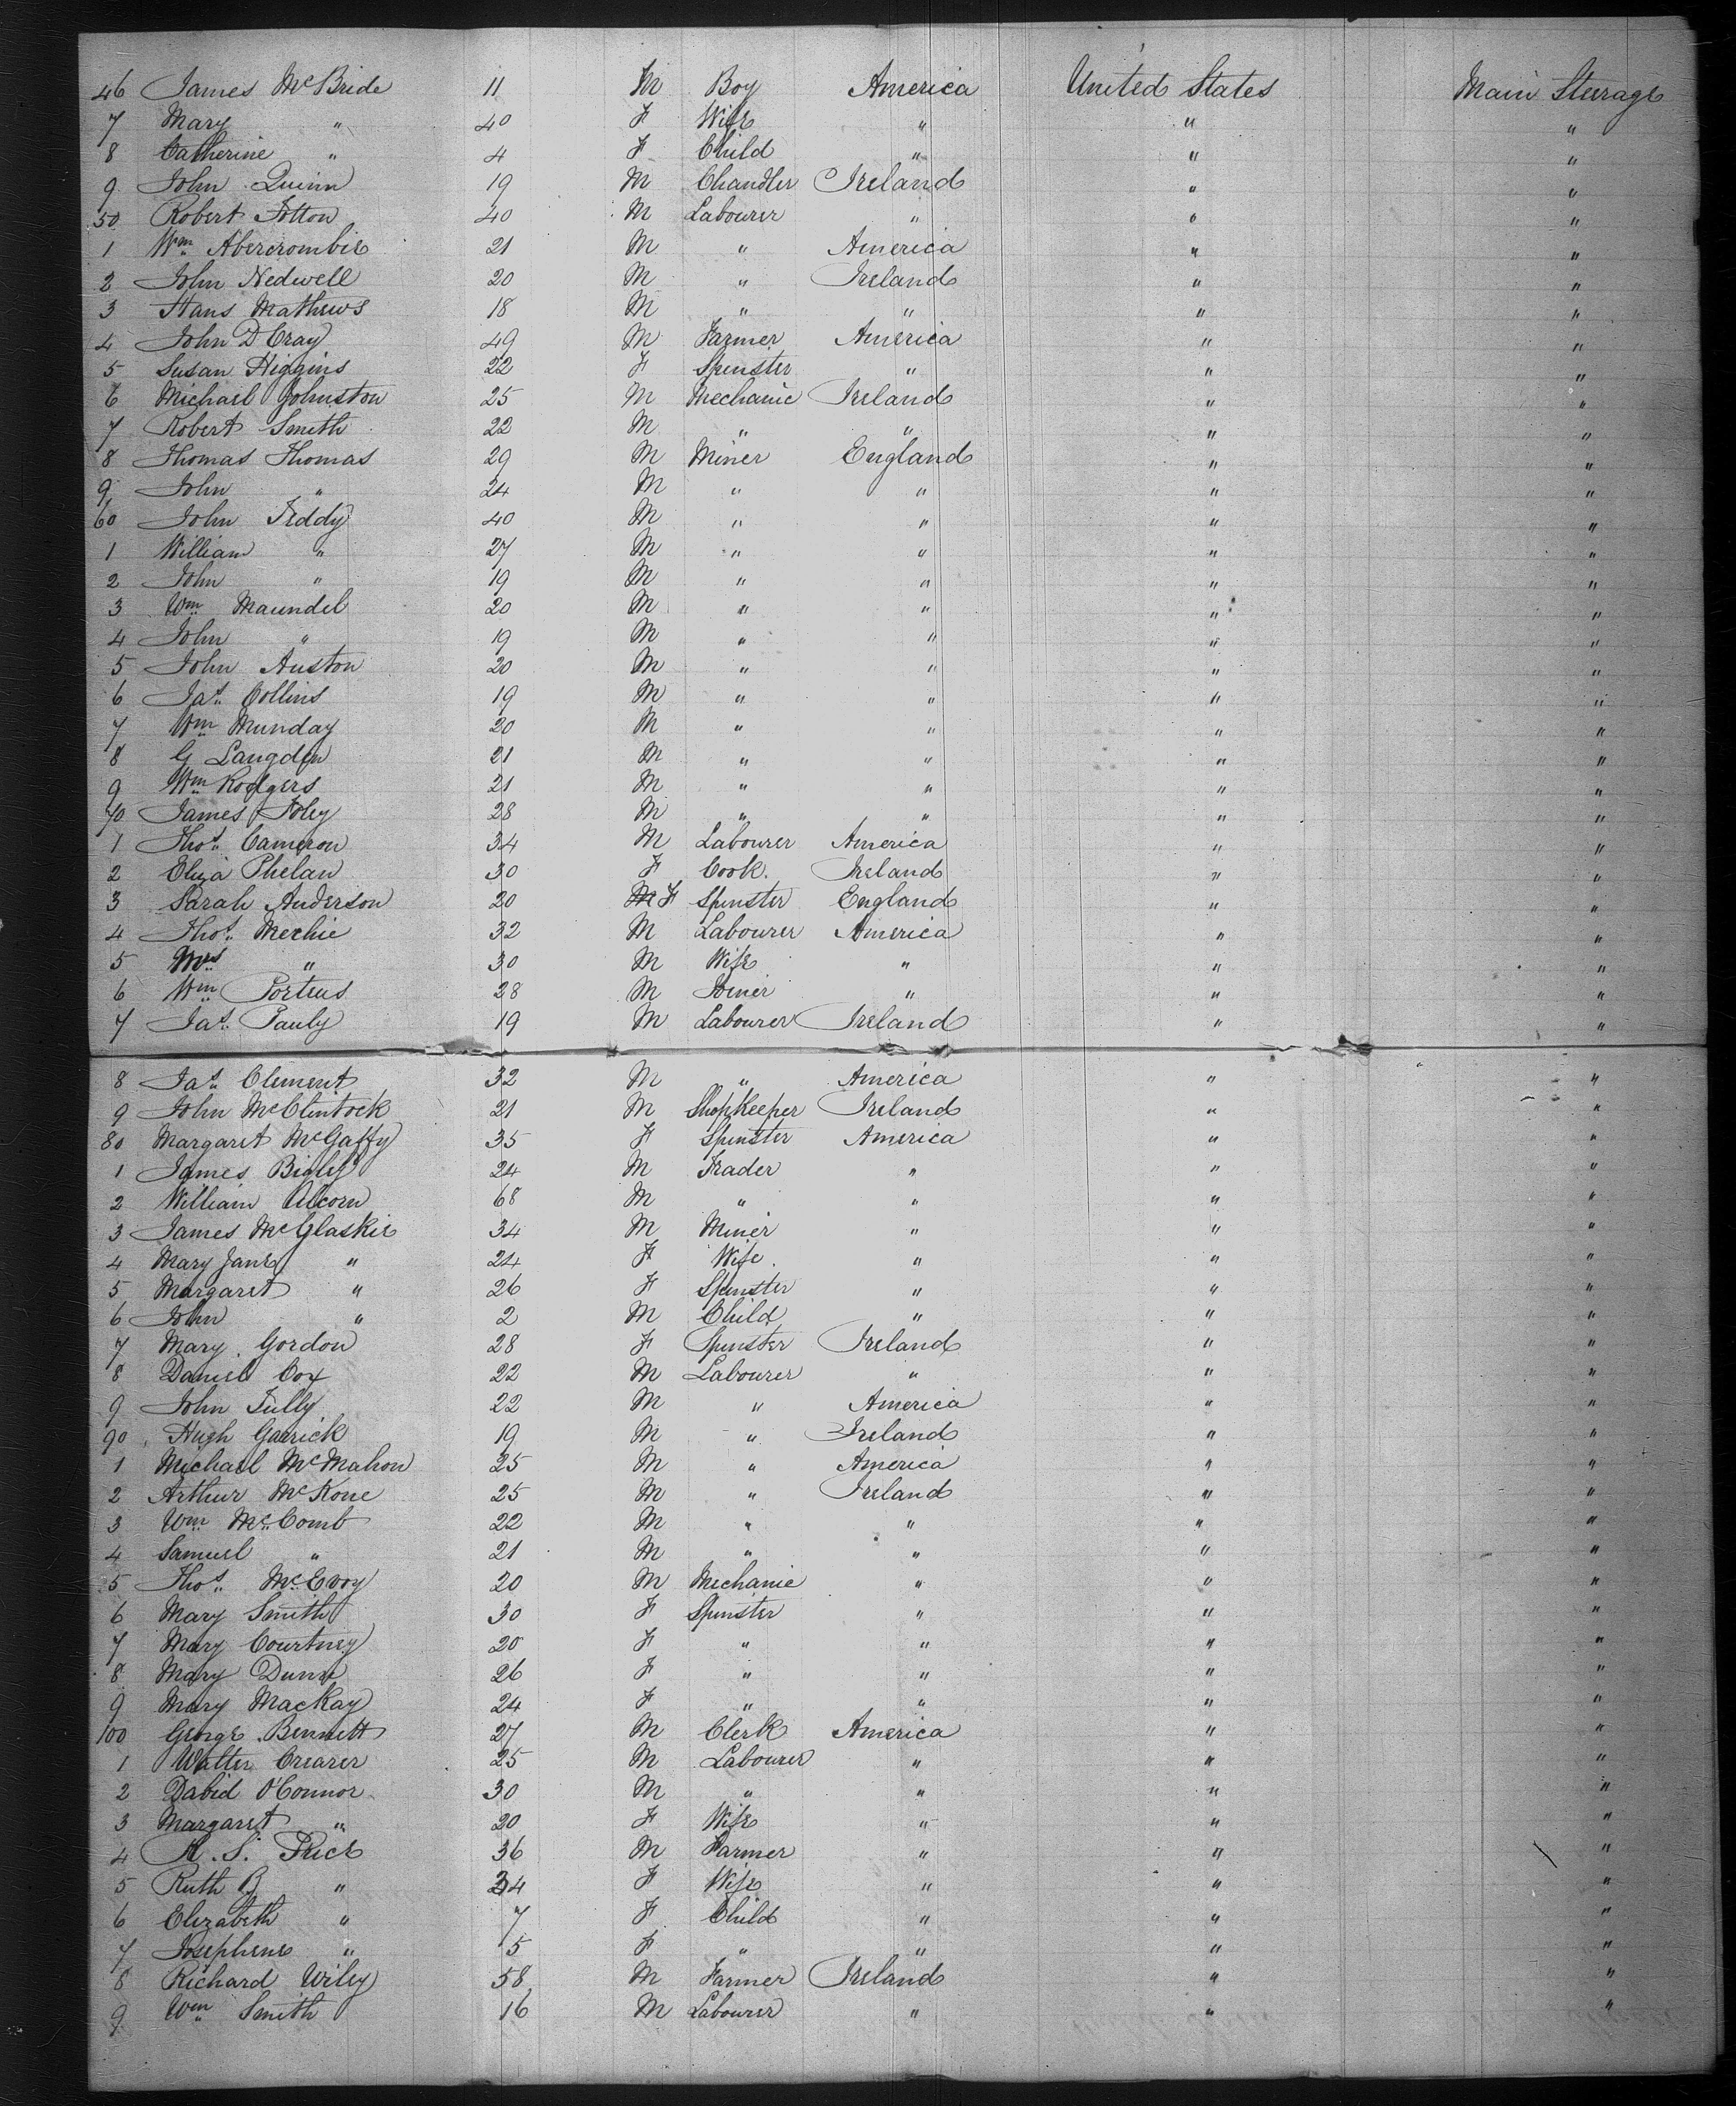 46 James McBride 11 M Boy America United States Main Steerage
7 Mary " 40 F Wife " " "
8 Catherine " 4 F Child " " "
9 John Quinn 19 M Chandler Ireland " "
50 Robert Totton 40 M Labourer " " "
1 Wm Abercrombie 21 M " America " "
2 John Nedwell 20 M " Ireland " "
3 Hans Mathews 18 M " " " "
4 John D Cray 49 M Farmer America " "
5 Susan Higgins 22 F Spinster " " "
6 Michael Johnston 25 M Mechanic Ireland " "
7 Robert Smith 22 M " " " "
8 Thomas Thomas 29 M Miner England " "
9 John " 24 M " " " "
60 John Teddy 40 M " " " "
1 William " 27 M " " " "
2 John " 19 M " " " "
3 Wm Maundel 20 M " " " "
4 John " 19 M " " " "
5 John Auston 20 M " " " "
6 Jas. Collins 19 M " " " "
7 Wm Munday 20 M " " " "
8 G Langden 21 M " " " "
9 Wm Rodgers 21 M " " " "
70 James Foley 28 M " " " "
1 Thos. Cameron 34 M Labourer America " "
2 Eliza Phelan 30 F Cook. Ireland " "
3 Sarah Anderson 20 M F Spinster England " "
4 Thos. Mechie 32 M Labourer America " "
5 Mrs " 30 M Wife " " "
6 Wm Porteus 28 M Joiner " " "
7 Jas. Pauly 19 M Labourer Ireland " "
8 Jas. Clement 32 M " America " "
9 John McClintock 21 M Shopkeeper Ireland " "
80 Margaret McGaffy 35 F Spinster America " "
1 James Bigley 24 M Trader " " "
2 William Alcorn 68 M " " " "
3 James McGlaskie 34 M Miner " " "
4 Mary Jane " 24 F Wife. " " "
5 Margaret " 26 F Spinster " " "
6 John " 2 M Child " " "
7 Mary Gordon 28 F Spinster Ireland " "
8 Daniel Cox 22 M Labourer " " "
9 John Tully 22 M " America " "
90 Hugh Garrick 19 M " Ireland " "
1 Michael McMahon 25 M " America " "
2 Arthur McKone 25 M " Ireland " "
3 Wm McComb 22 M " " " "
4 Samuel " 21 M " " " "
5 Thos. McEvoy 20 M Mechanic " " "
6 Mary Smith 30 F Spinster " " "
7 Mary Courtney 20 F " " " "
8 Mary Dunn 26 F " " " "
9 Mary MacKay 24 F " " " "
100 George Bennett 27 M Clerk America " "
1 Walter Crearer 25 M Labourer " " "
2 David O'Connor 30 M " " " "
3 Margaret " 20 F Wife " " "
4 S. Price 36 M Farmer " " "
5 Ruth B " 34 F Wife " " "
6 Elizabeth " 7 F Child " " "
7 Josephene " 5 F " " " "
8 Richard Wiley 58 M Farmer Ireland " "
9 Wm Smith 16 M Labourer " "  "